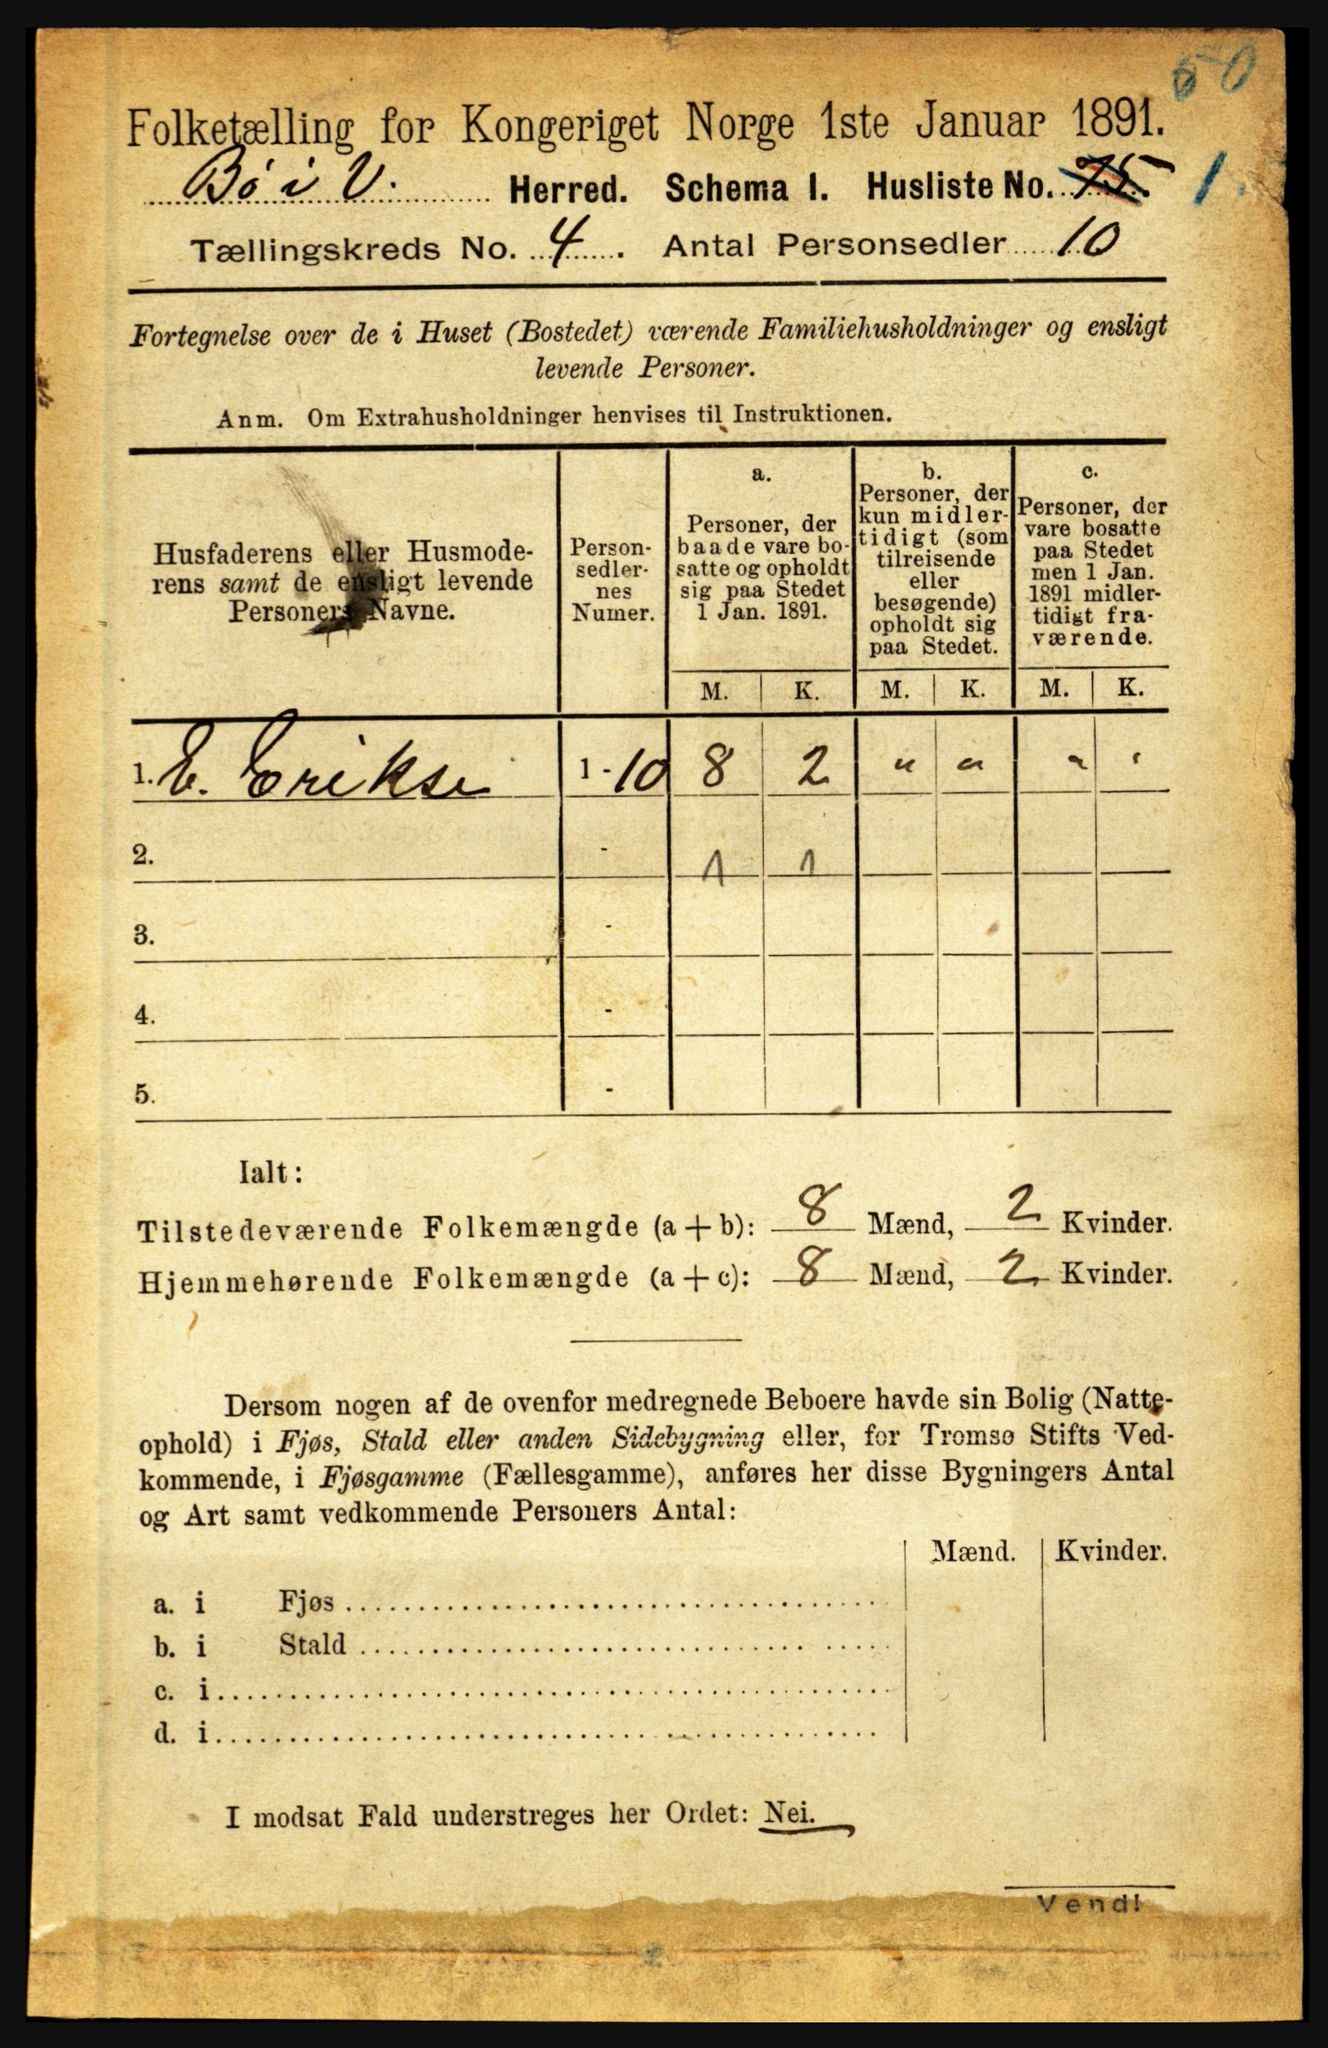 50
Folketælling for Kongeriget Norge 1ste Januar 1891.
Bø i V. Herred. Schema 1. Husliste No. 75 1.
Tællingskreds No. 4. Antal Personsedler 10
Fortegnelse over de i Huset (Bostedet) værende Familiehusholdninger og ensligt
levende Personer.
Anm. Om Extrahusholdninger henvises til Instruktionen.
Husfaderens eller Husmode-
rens samt de ensligt levende
Personers Navne.
Person-
sedler-
nes
Numer.
a.
Personer, der
baade vare bo-
satte og opholdt
sig paa Stedet
1 Jan. 1891.
b.
Personer, der
kun midler-
tidigt (som
tilreisende
eller
besøgende)
opholdt sig
paa Stedet.
c.
Personer, der
vare bosatte
paa Stedet
men 1 Jan.
1891 midler-
tidigt fra-
værende.
M. K. M. K. M. K.
1. E. Erikse 1 - 10 8 2 " " " "
2. - 1 1
3. -
4. -
5. -
Ialt:
Tilstedeværende Folkemængde (a + b): 8 Mænd, 2 Kvinder.
Hjemmehørende Folkemængde (a + c): 8 Mænd, 2 Kvinder.
Dersom nogen af de ovenfor medregnede Beboere havde sin Bolig (Natte-
ophold) i Fjøs, Stald eller anden Sidebygning eller, for Tromsø Stifts Ved-
kommende, i Fjøsgamme (Fællesgamme), anføres her disse Bygningers Antal
og Art samt vedkommende Personers Antal:
Mænd. Kvinder.
a. i Fjøs
b. i Stald
c. i
d. i
I modsat Fald understreges her Ordet: Nei.
Vend!